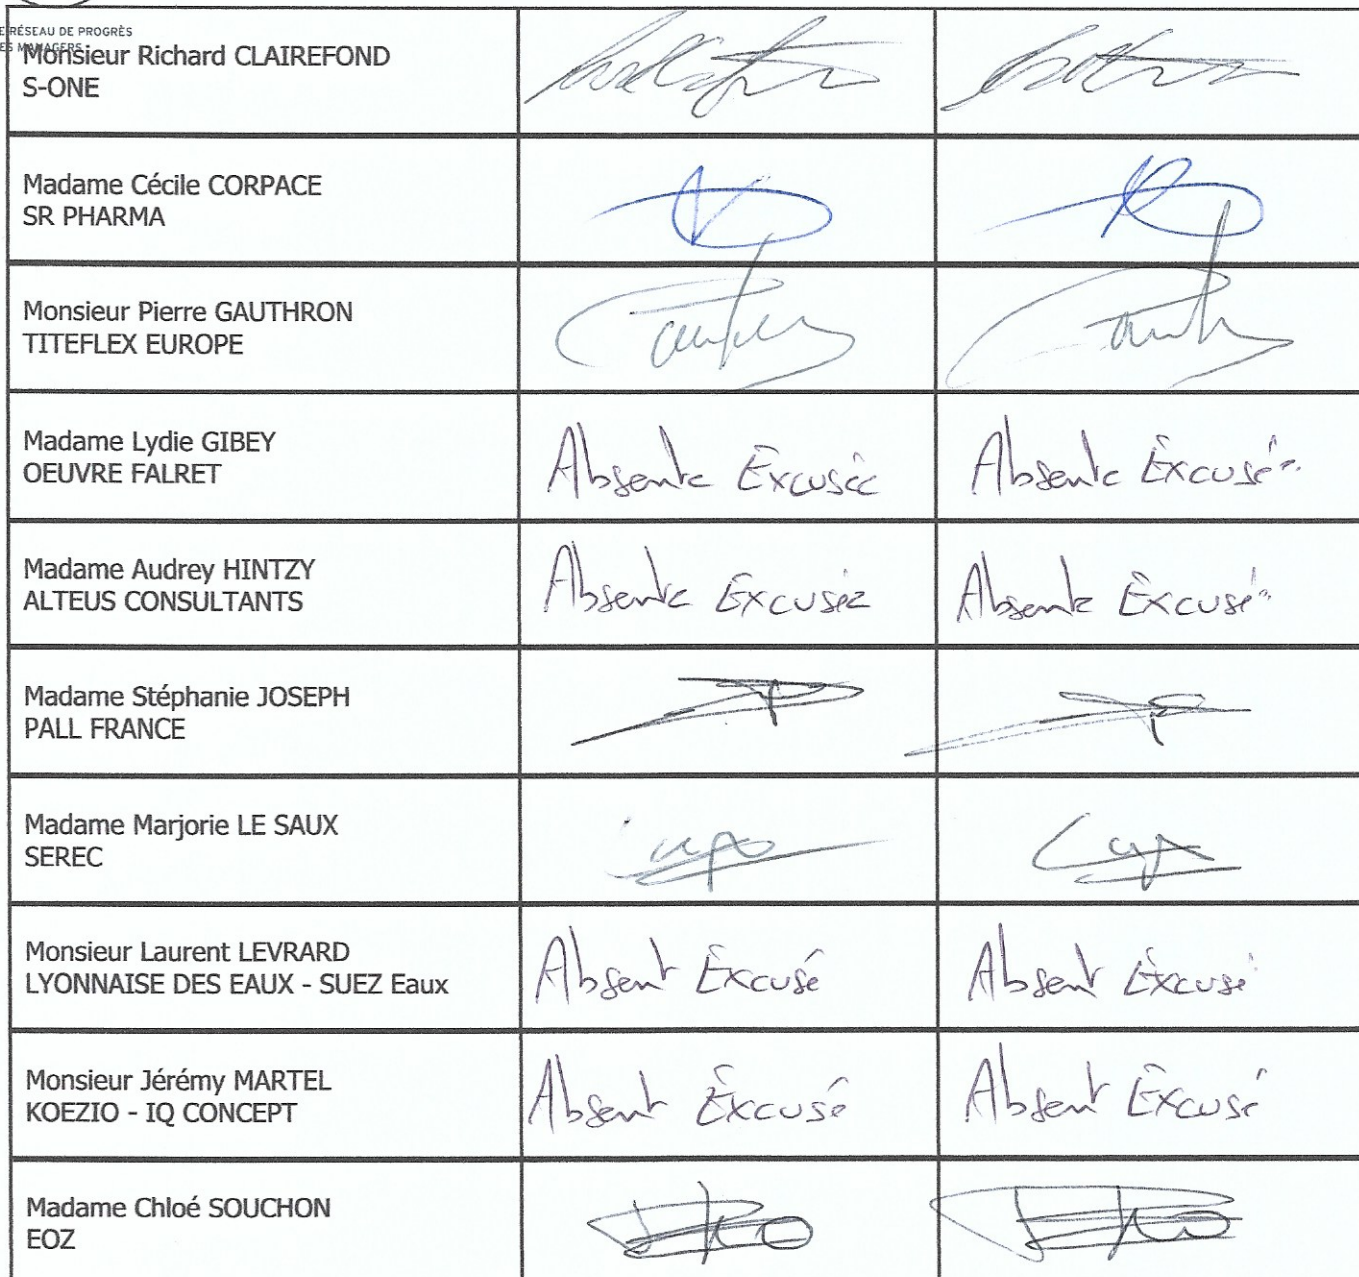 E RÉSEAU DE PROGRÈS
ES MANAGERS
Monsieur Richard CLAIREFOND
S-ONE
Madame Cécile CORPACE
SR PHARMA
Monsieur Pierre GAUTHRON
TITEFLEX EUROPE
Madame Lydie GIBEY
OEUVRE FALRET
Absente Excusée
Absente Excusée
Madame Audrey HINTZY
ALTEUS CONSULTANTS
Absente Excusée
Absente Excusée
Madame Stéphanie JOSEPH
PALL FRANCE
Madame Marjorie LE SAUX
SEREC
Monsieur Laurent LEVRARD
LYONNAISE DES EAUX - SUEZ Eaux
Absent Excusé
Absent Excusé
Monsieur Jérémy MARTEL
KOEZIO - IQ CONCEPT
Absent Excusé
Absent Excusé
Madame Chloé SOUCHON
EOZ